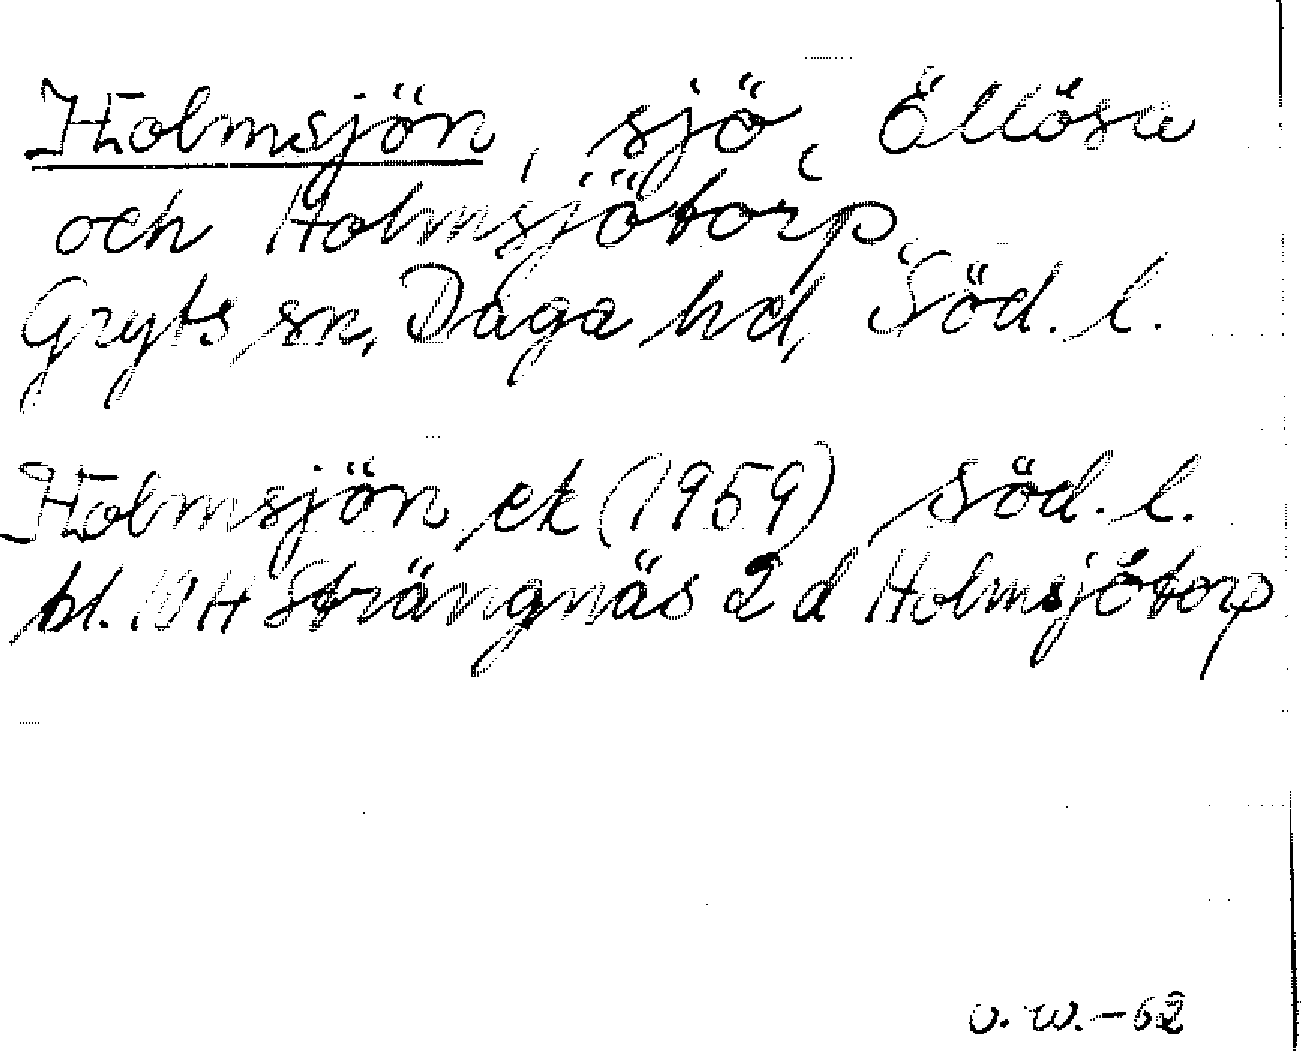 Holmsjön, sjö, Ällösa
och Holmsjötorp
Gryts sn, Daga hd, Söd. l.
Holmsjön ek (1959) Söd. l.
bl. 10 H Strängnäs 2 d Holmsjötorp
v. w. - 62